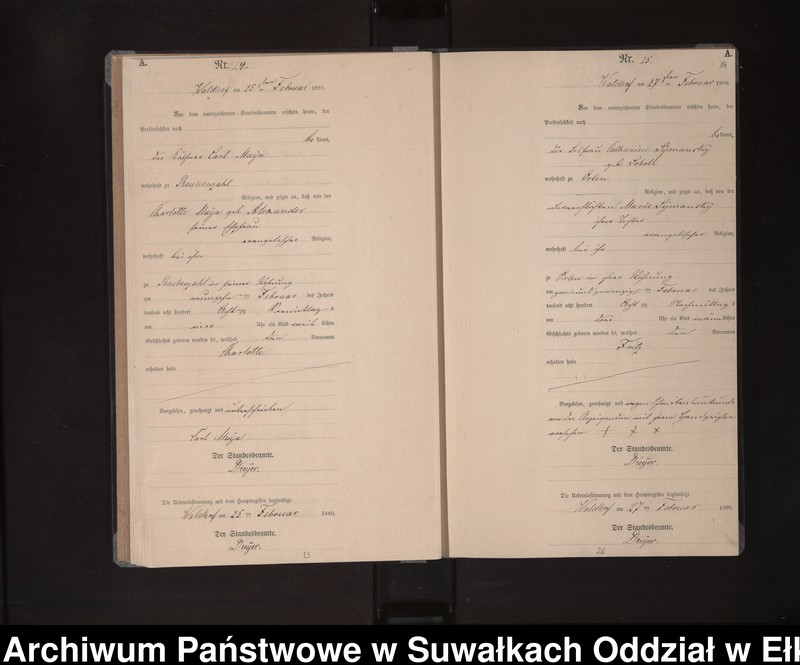 A.
Nr. 24.
Waldhof am 25 ten Februar 1880.
Vor dem unterzeichneten Standesbeamten erschien heute, der
Persönlichkeit nach
be kannt,
die Käthner Carl Maija
wohnhaft zu Beelenzahl
Religion, und zeigte an, daß von der
Charlotte Maija geb. Alexander
seiner Ehefrau
evangelischer Religion,
wohnhaft bei ihm
zu in seiner Wohnung
am neunzehn ten Februar des Jahres
tausend acht hundert Acht zig Vormittag s
um vier Uhr ein Kind weib lichen
Geschlechts geboren worden sei, welches den Vornamen
Charlotte
erhalten habe
Vorgelesen, genehmigt und unterschrieben
Carl Maija
Der Standesbeamte.
Dreyer.
Die Uebereinstimmung mit dem Hauptregister beglaubigt.
Waldhof am 25 ten Februar 1880.
Der Standesbeamte.
Dreyer.
25
A.
Nr. 25.
Waldhof am 27 sten Februar 1880.
Vor dem unterzeichneten Standesbeamten erschien heute, der
Persönlichkeit nach
be kannt,
die Catharine Symansky
geb. Soboll
wohnhaft zu Orlen
Religion, und zeigte an, daß von der
unverehelichten Marie Symansky
ihrer Tochter
evangelischer Religion,
wohnhaft bei ihr
zu Orlen in ihrer Wohnung
am ten Februar des Jahres
tausend acht hundert Acht zig Nachmittag s
um drei Uhr ein Kind männ lichen
Geschlechts geboren worden sei, welches den Vornamen
Fritz
erhalten habe
Vorgelesen, genehmigt und wegen Schreibensunkunde
von der Anzeigenden mit ihrem Handzeichen
versehen + + x
Der Standesbeamte.
Dreyer.
Die Uebereinstimmung mit dem Hauptregister beglaubigt.
Waldhof am 27 ten Februar 1880.
Der Standesbeamte.
Dreyer.
26
Archiwum Państwowe w Suwałkach Oddział w Ełk